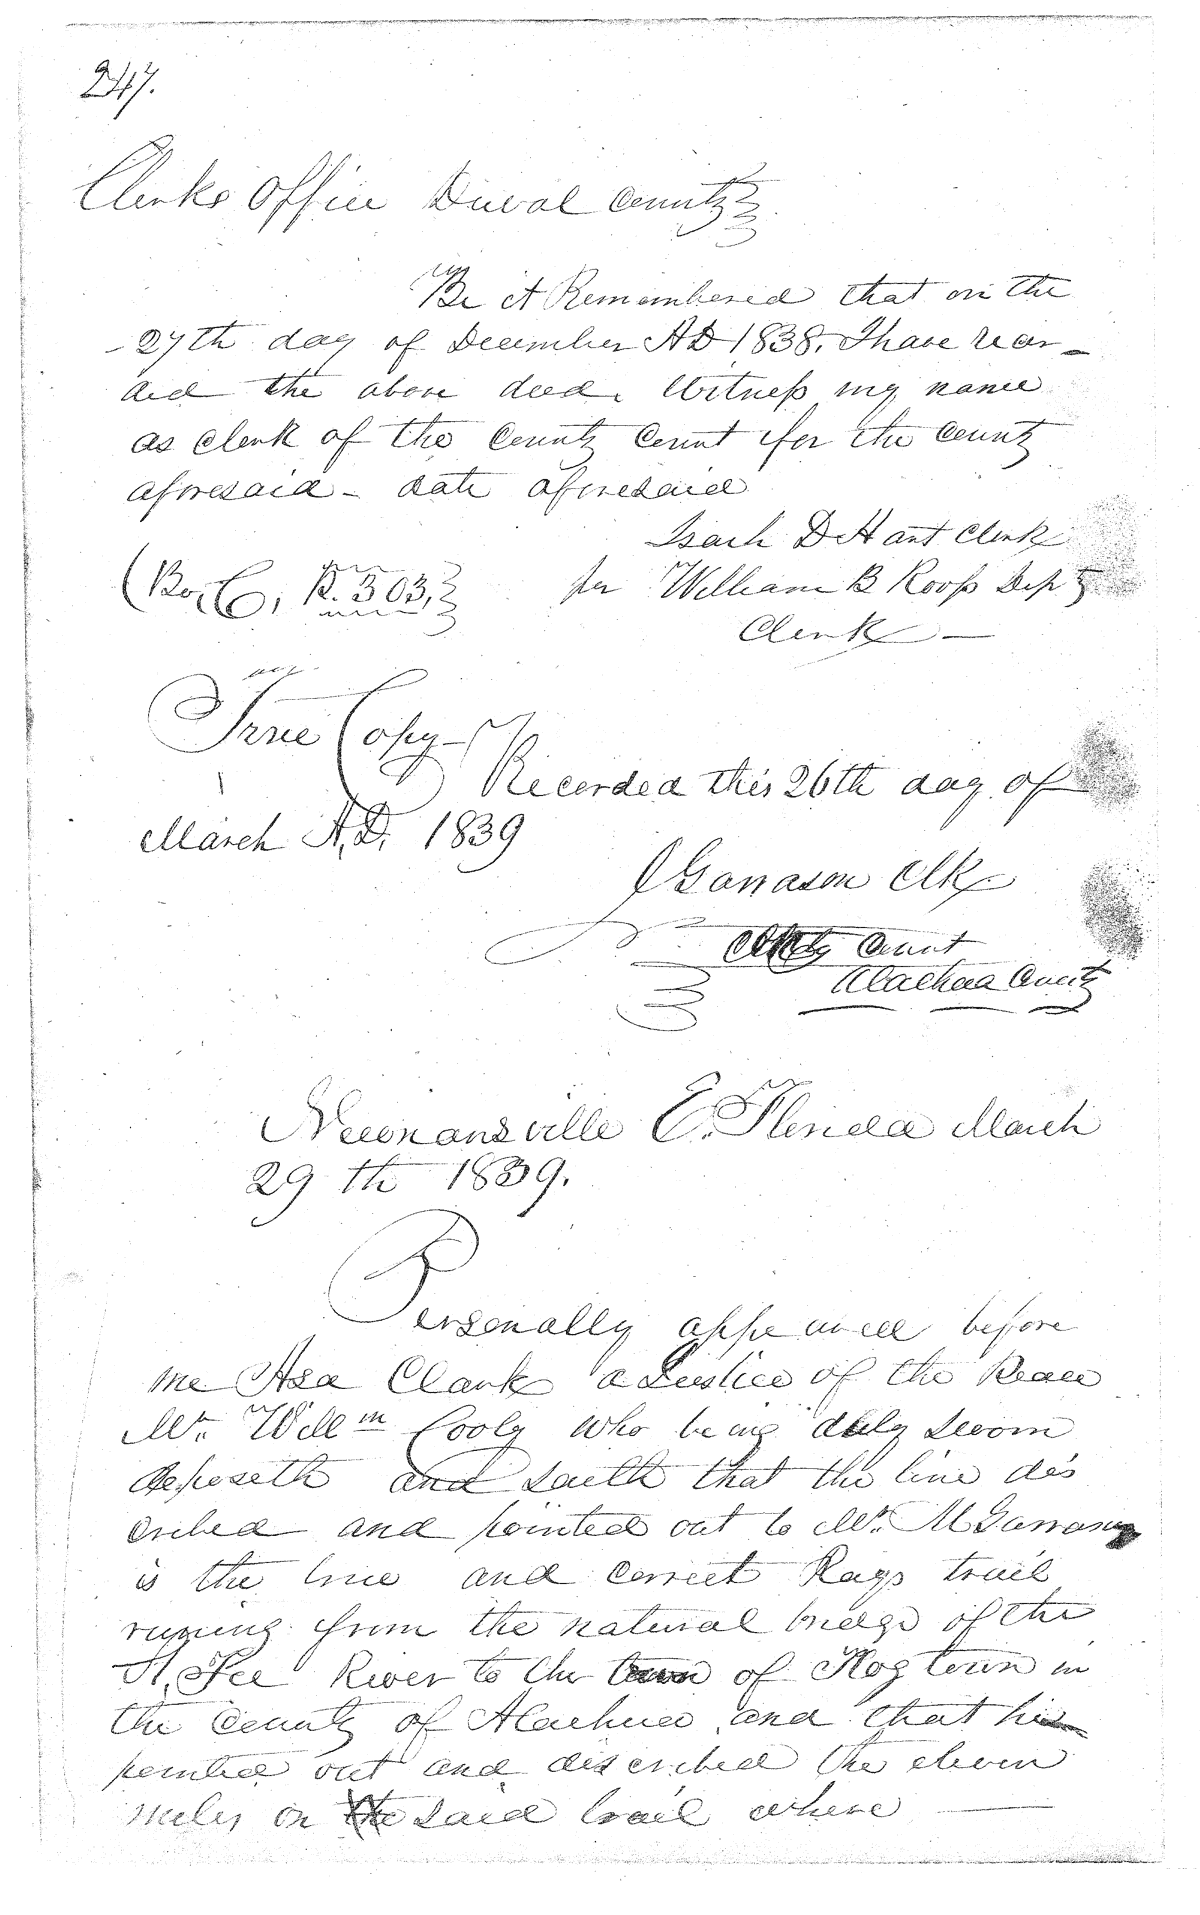 247.
Clerks Office Duval County
Be it Remembered that on the
27th day of December AD 1838, I have recor-
ded the above deed. Witness my name
as Clerk of the County Court for the County
aforesaid - date aforesaid
Isaih D Hart Clerk
per William B Ross Dept
Clerk
(Bo, C, P. 303,
True Copy
Recorded this 26th day of
March A.D. 1839
Garrason Clk
County Court
Alachua County
Newnansville E. Florida March
29 th 1839.
Personally appeared before
me Asa Clark a Justice of the Peace
Mr. Willm Cooly who being duly sworn
deposeth and saith that the line des
cribed and pointed out to Mr. M Garrason
is the line and correct trail
runing from the natural bridge of the
St, Fee River to the town of Hogtown in
the County of Alachua and that he
pointed out and described the eleven
miles on the said trail where